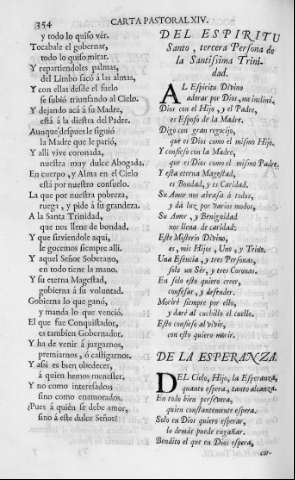 354
CARTA PASTORAL XIV.
y todo lo quiso vér.
Tocabale el gobernar,
todo lo quiso mirar.
Y repartiendoles palmas,
del Limbo sacó á las almas,
Y con ellas desde el suelo
se subió triunfando al Cielo.
Y dejando acá á su Madre,
está á la diestra del Padre.
Aunque despues le siguió
la Madre que le parió,
Y alli vive coronada,
nuestra muy dulce Abogada.
En cuerpo, y Alma en el Cielo
está por nuestro consuelo.
La que por nuestra pobreza,
ruega, y pide á su grandeza.
A la Santa Trinidad,
que nos llene de bondad.
Y que sirviendole aqui,
le gocemos siempre alli.
Y aquel Señor Soberano,
en todo tiene la mano.
Y su eterna Magestad,
gobierna á su voluntad.
Gobierna lo que ganó,
y manda lo que venció.
El que fue Conquistador,
es tambien Gobernador.
Y ha de venir á juzgarnos,
premiarnos, ó castigarnos.
Y assi es bien obedecer,
á quien hemos menester.
Y no como interesados
sino como enamorados.
¡Pues á quién se debe amar,
sino á este dulce Señor!
DEL ESPIRITU
Santo, tercera Persona de
la Santissima Trini-
dad.
AL Espiritu Divino
adorar por Dios, me inclino,
Dios con el Hijo, y el Padre,
es Esposo de la Madre.
Digo con gran regocijo,
que es Dios como el mismo Hijo.
Y confieso con la Madre,
que es Dios como el mismo Padre.
Y esta eterna Magestad,
es Bondad, y es Caridad.
Su Amor nos abrasa á todos,
y dá luz por varios modos.
Su Amor, y Benignidad
nos llena de caridad:
Este Misterio Divino,
es, mis Hijos, Uno, y Trino.
Una Esencia, y tres Personas,
solo un Sér, y tres Coronas.
En solo esto quiero creer,
confesar, y defender.
Moriré siempre por ello,
y daré al cuchillo el cuello.
Esto confieso al vivir,
con esto quiero morir.
DE LA ESPERANZA.
DEL Cielo, Hijo, la Esperanza,
quanto espera, tanto alcanza.
En todo bien persevera,
quien constantemente espera.
Solo en Dios quiero esperar,
lo demás puede engañar.
Bendito el que en Dios espera,
cor-